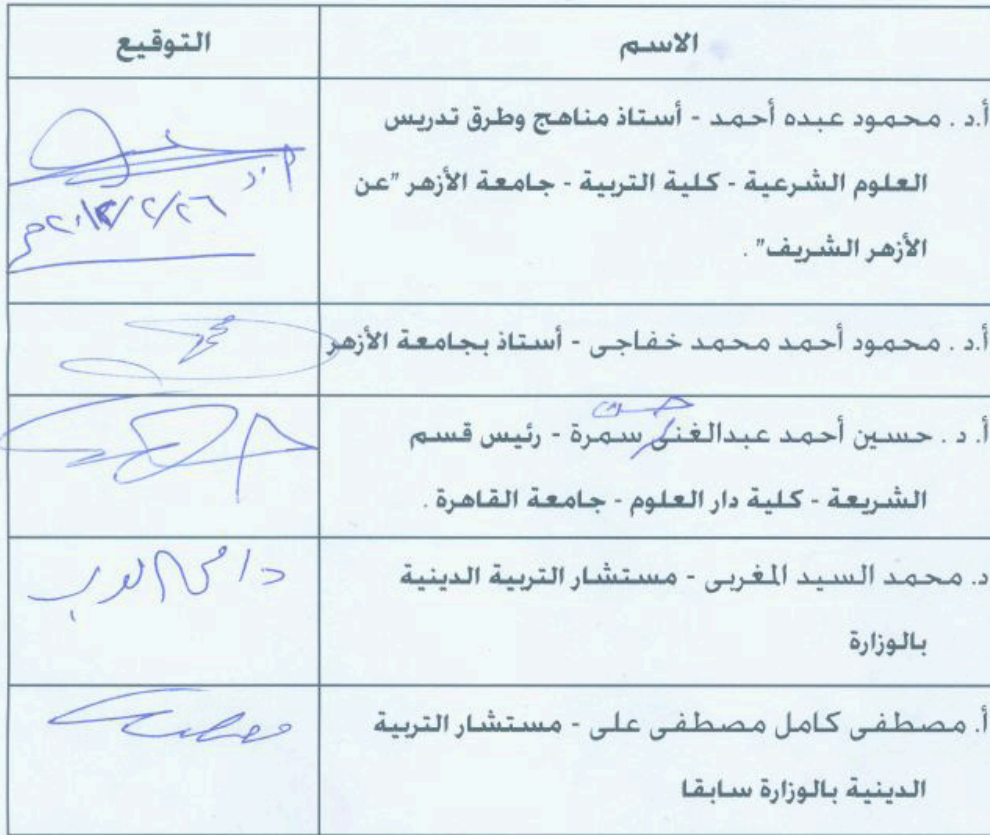 الاسم
التوقيع
أ.د . محمود عبده أحمد - أستاذ مناهج وطرق تدريس
العلوم الشرعية - كلية التربية - جامعة الأزهر "عن
الأزهر الشريف" .
أ.د . محمود أحمد محمد خفاجى - أستاذ بجامعة الأزهر
أ. د . حسين أحمد عبدالغنى سمرة - رئيس قسم
الشريعة - كلية دار العلوم - جامعة القاهرة .
د. محمد السيد المغربى - مستشار التربية الدينية
بالوزارة
أ. مصطفى كامل مصطفى على - مستشار التربية
الدينية بالوزارة سابقا